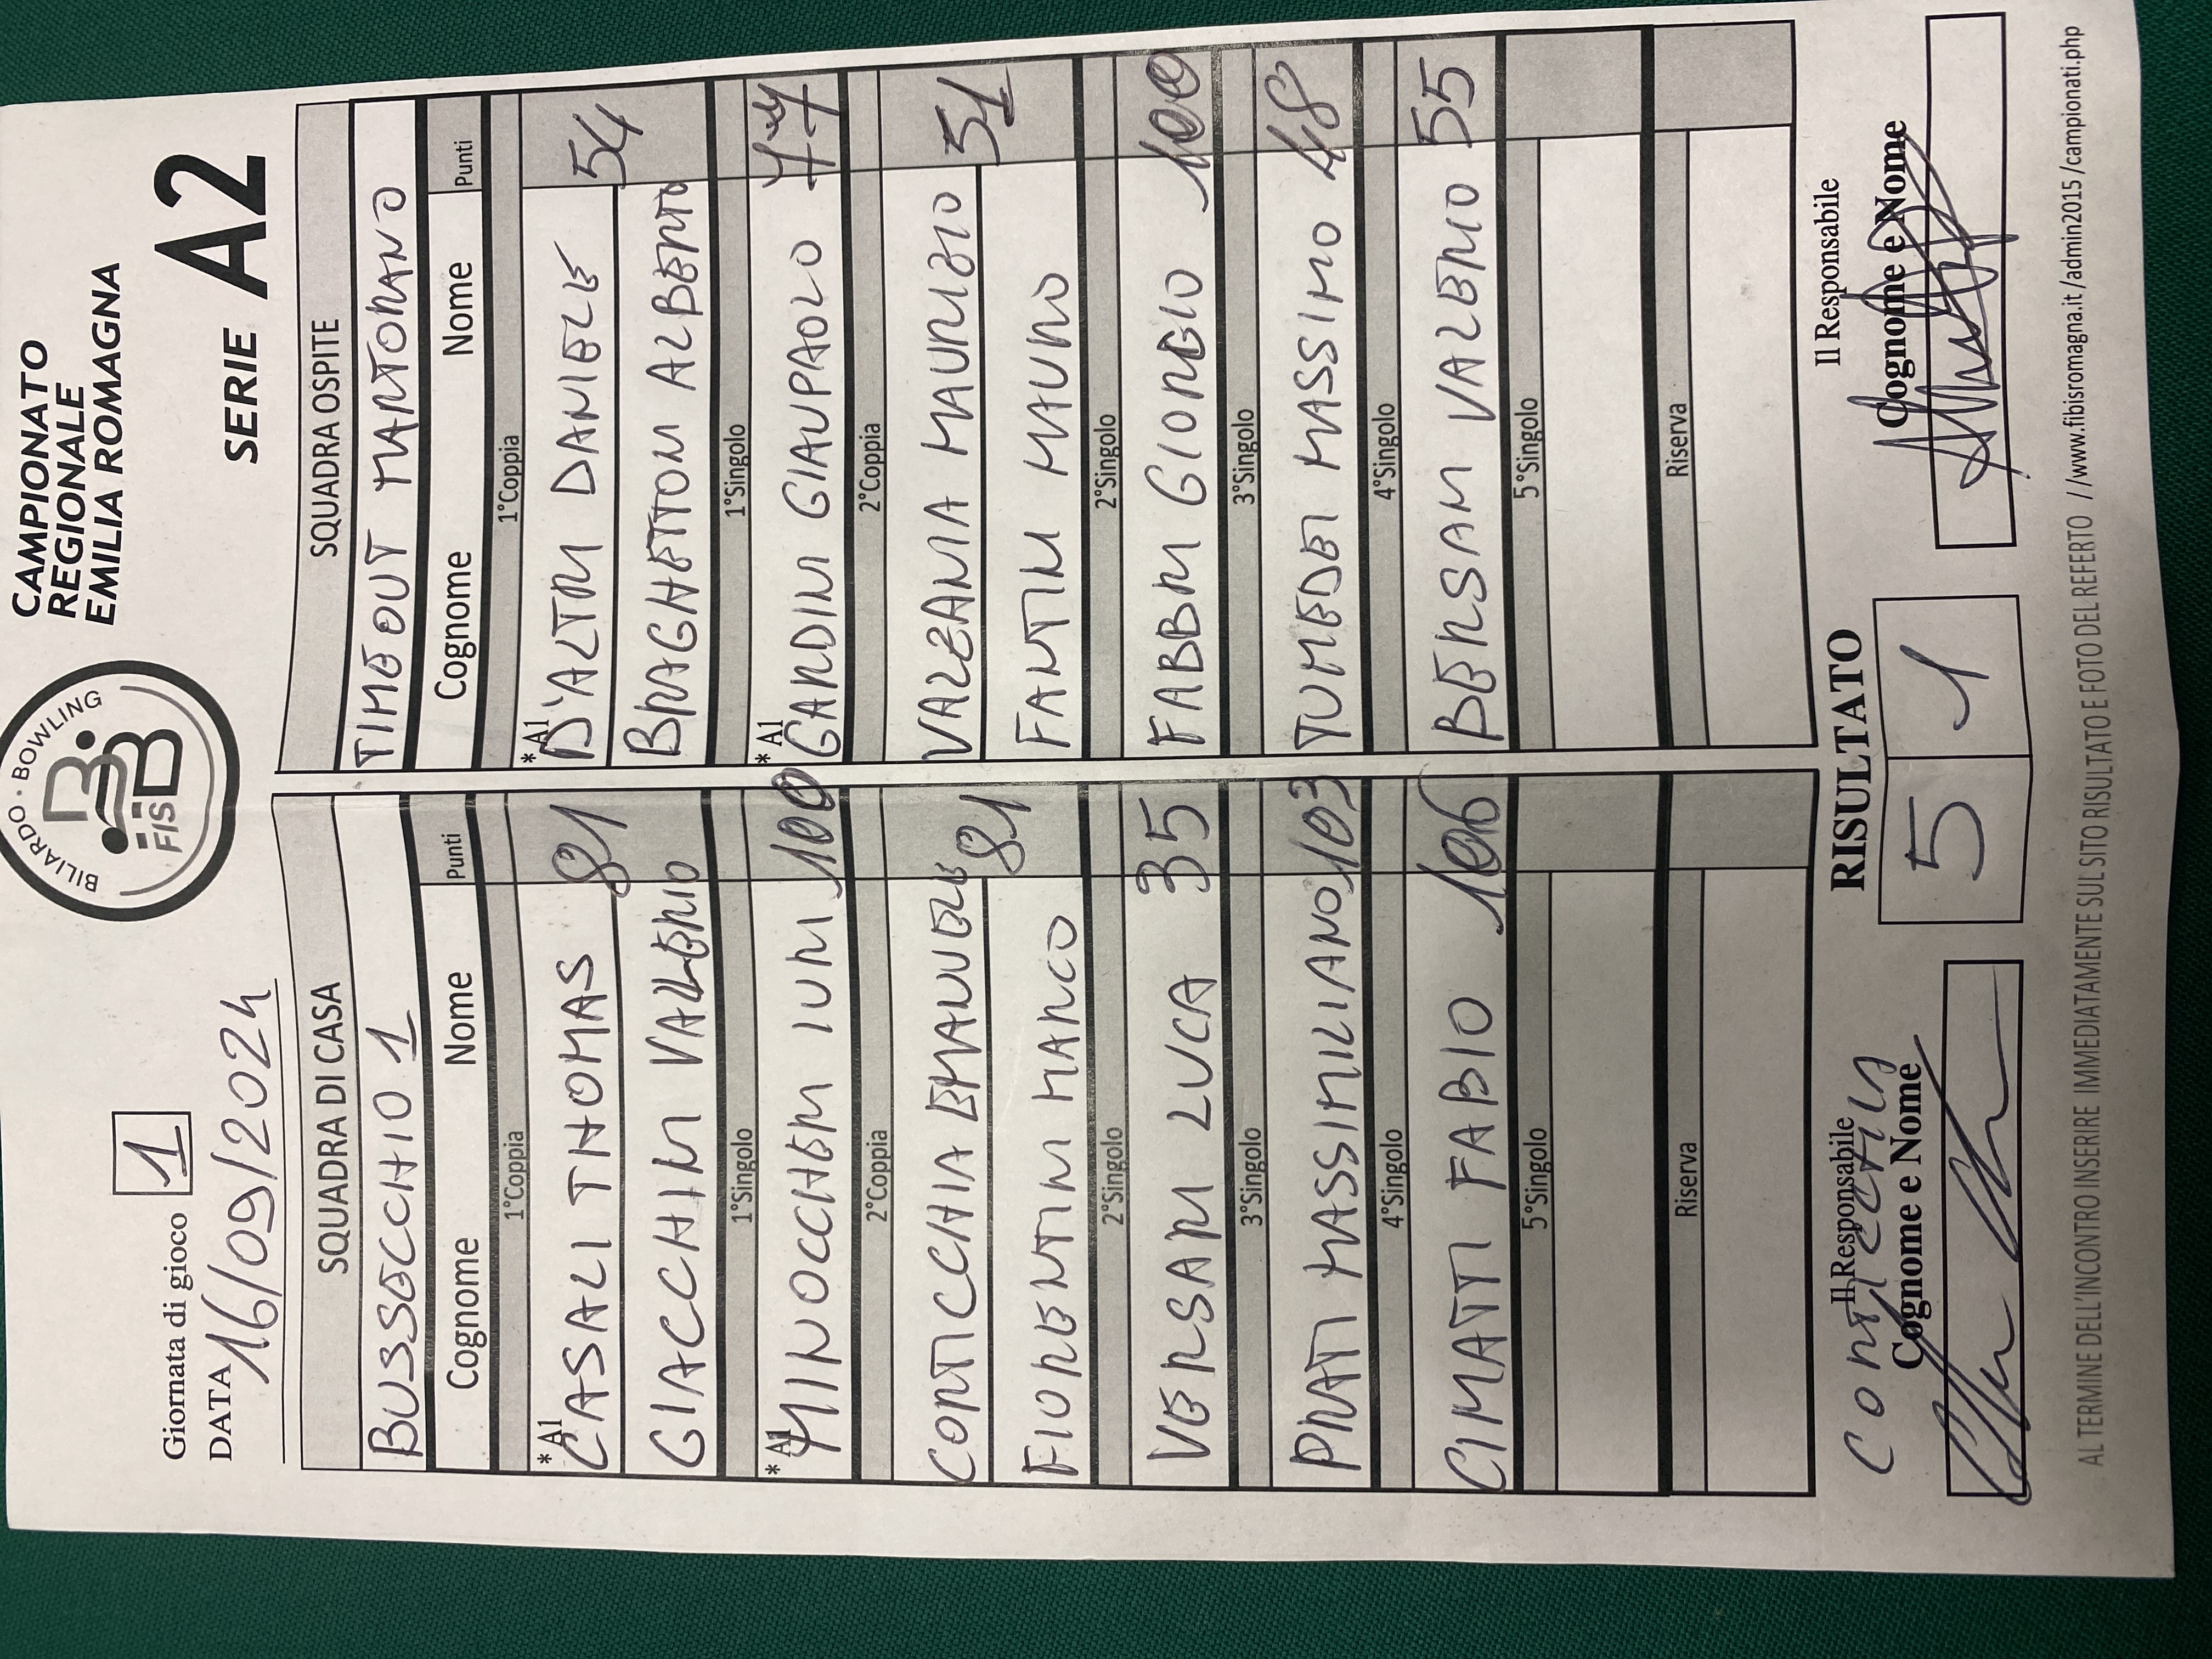 BILIARDO · BOWLING
FISBB
CAMPIONATO
REGIONALE
EMILIA ROMAGNA
Giornata di gioco 1
DATA 16/09/2024
SERIE A2
SQUADRA DI CASA
BUSSECCHIO 1
Cognome Nome Punti
1°Coppia
*A1
CASALI THOMAS 81
GIACCHINI VALERIO
1°Singolo
*A1
MINOCCHERI IURI 100
2°Coppia
CORTICCHIA EMANUELE 81
FIORENTINI MARCO
2°Singolo
VERSARI LUCA 35
3°Singolo
PRATI MASSIMILIANO 103
4°Singolo
CIMATTI FABIO 106
5°Singolo
Riserva
SQUADRA OSPITE
TIMEOUT MARTORANO
Cognome Nome Punti
1°Coppia
*A1
D'ALTRI DANIELE 54
BRAGHETTONI ALBERTO
1°Singolo
*A1
GARDINI GIANPAOLO 77
2°Coppia
VALZANIA MAURIZIO 51
FANTINI MAURO
2°Singolo
FABBRI GIORGIO 100
3°Singolo
TUMEDEI MASSIMO 48
4°Singolo
BERSANI VALERIO 55
5°Singolo
Riserva
Il Responsabile
Cognome e Nome
RISULTATO
5 1
Il Responsabile
Cognome e Nome
AL TERMINE DELL'INCONTRO INSERIRE IMMEDIATAMENTE SUL SITO RISULTATO E FOTO DEL REFERTO //www.fibisromagna.it/admin2015/campionati.php